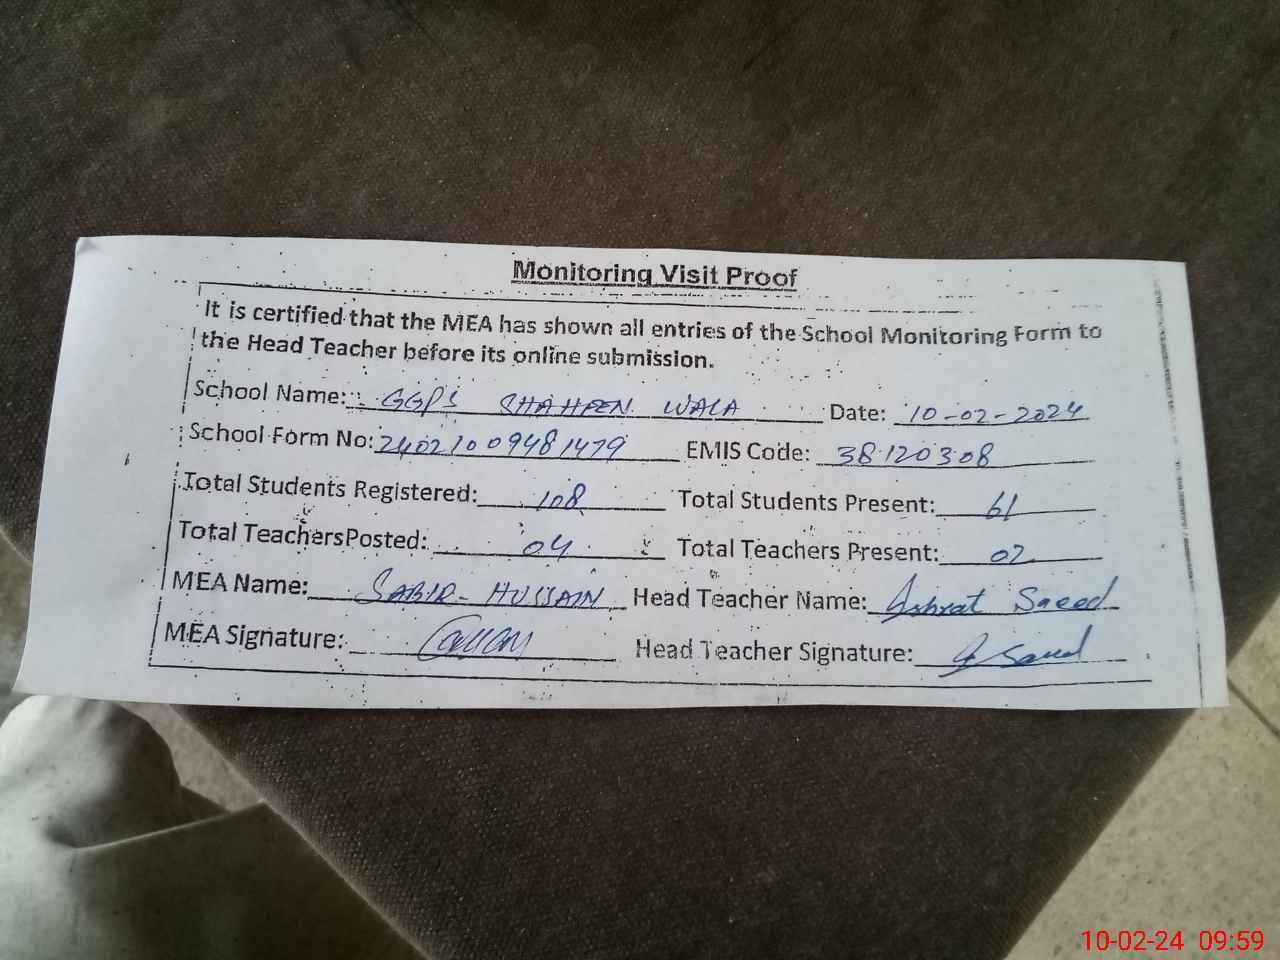 Monitoring Visit Proof
It is certified that the MEA has shown all entries of the School Monitoring Form to
the Head Teacher before its online submission.
School Name: GGPS SHAHEEN WALA Date: 10-02-2024
School Form No: 24021009481479 EMIS Code: 38120308
Total Students Registered: 108 Total Students Present: 61
Total TeachersPosted: 04 Total Teachers Present: 02
MEA Name: SABIR- HUSSAIN Head Teacher Name: Ishrat Saeed
MEA Signature: Head Teacher Signature: I Saeed
10-02-24 09:59